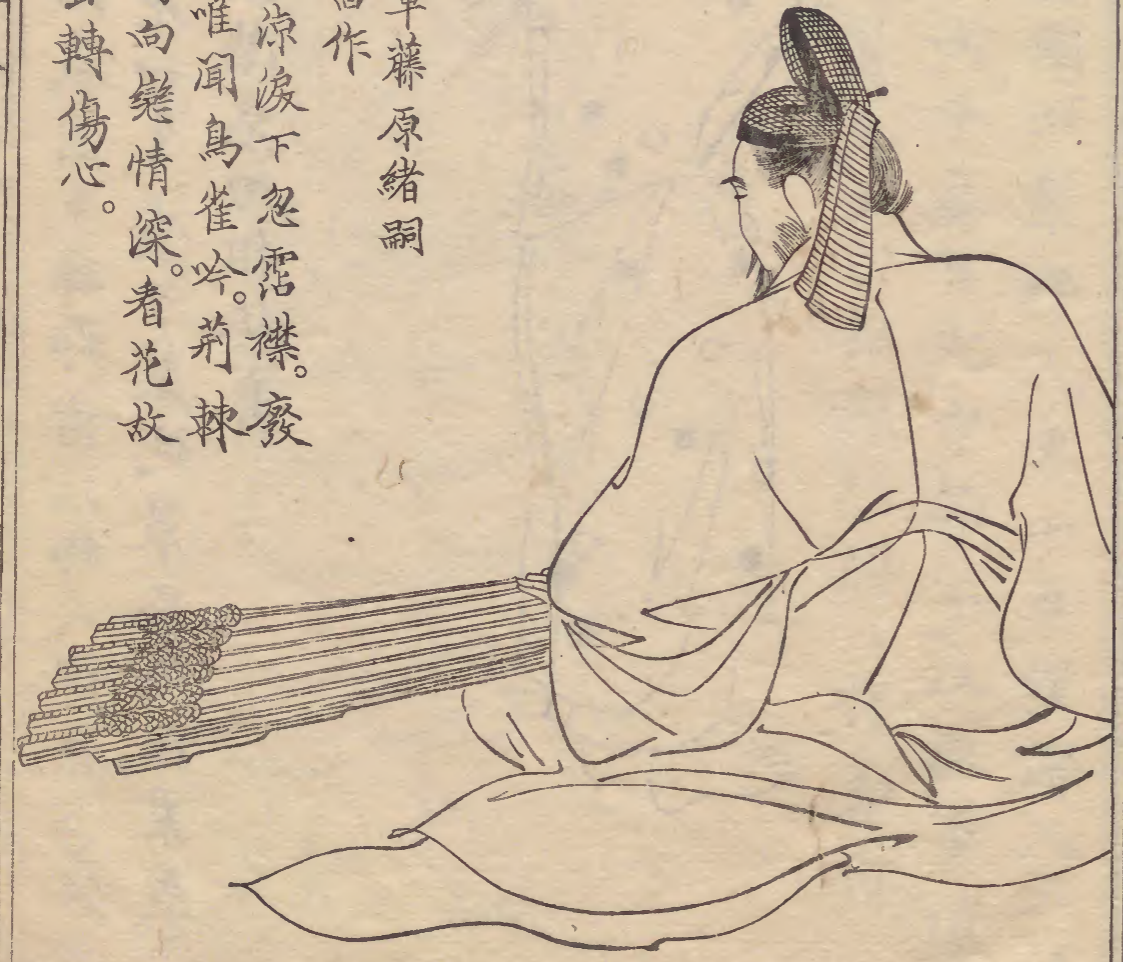 藤原緒嗣
作
涼淚下忽霑襟。廢
唯聞鳥雀吟。荊棘
向戀情深。看花故
轉傷心。